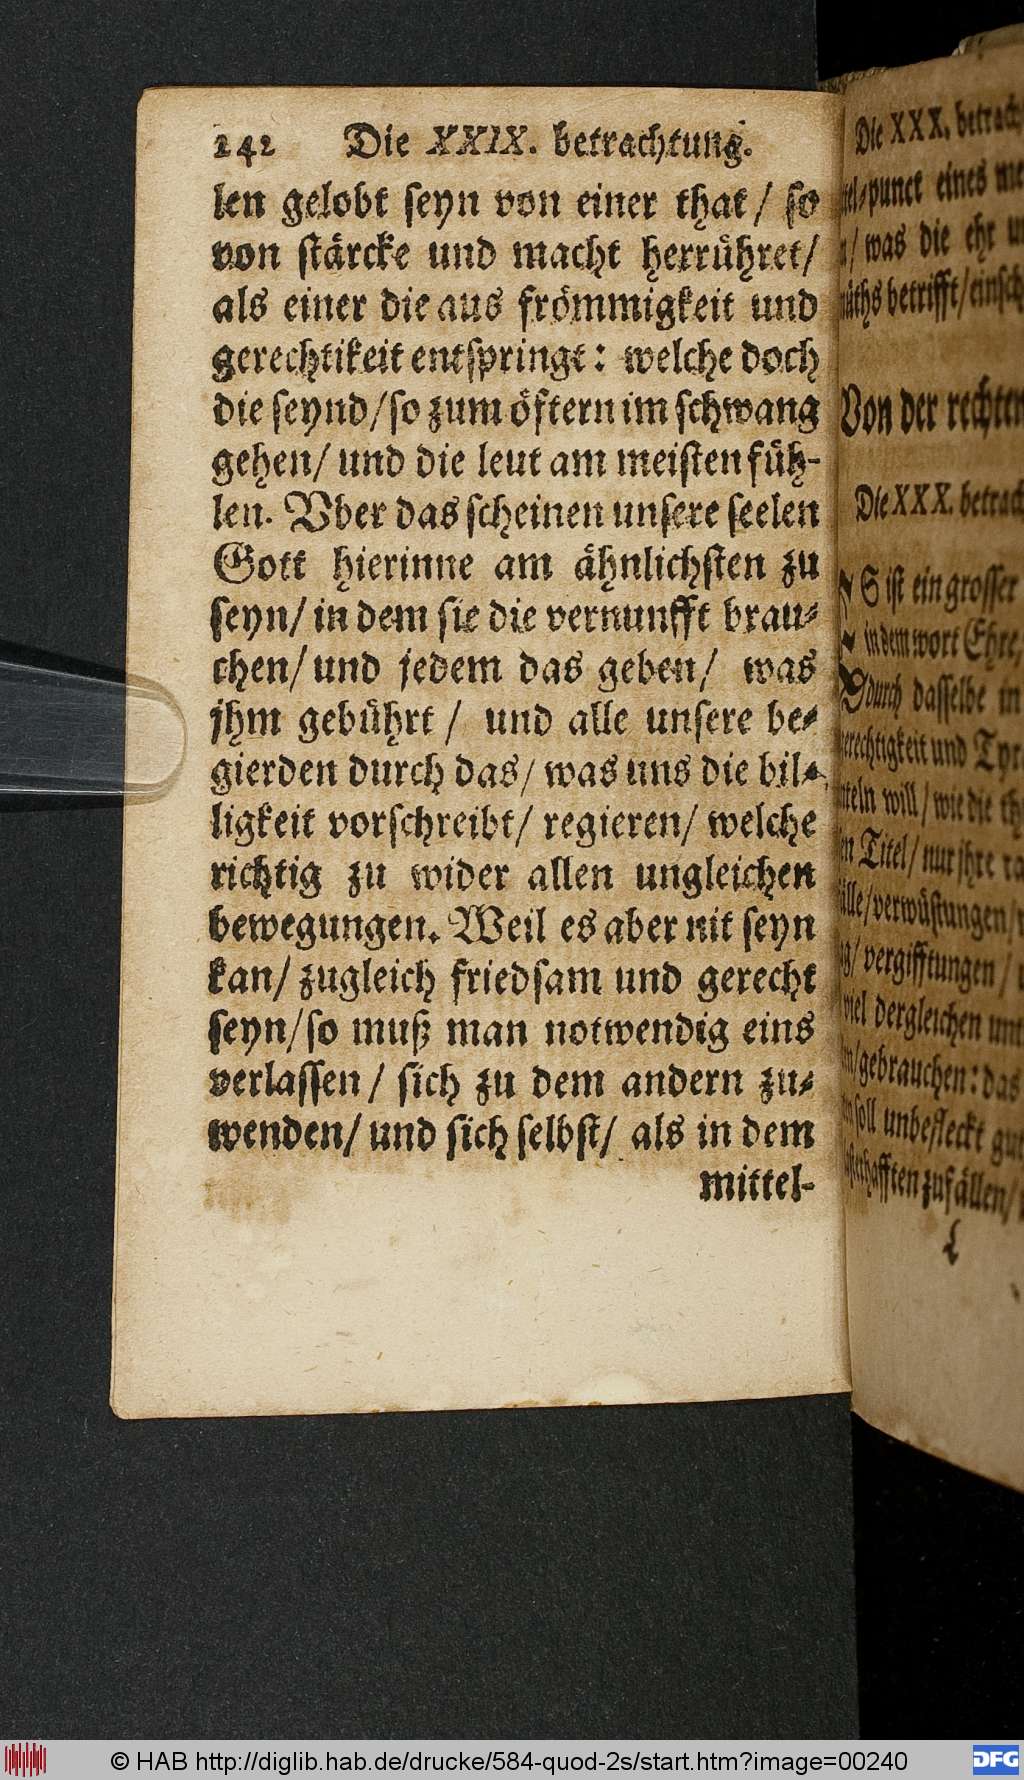 242 Die XXIX. betrachtung.
len gelobt seyn von einer that / so
von stärcke und macht herrühret/
als einer die aus frömmigkeit und
gerechtikeit entspringt: welche doch
die seynd/so zum öftern im schwang
gehen/ und die leut am meisten füh-
len. Vber das scheinen unsere seelen
Gott hierinne am ähnlichsten zu
seyn/ in dem sie die vernunfft brau-
chen/ und jedem das geben/ was
jhm gebührt / und alle unsere be-
gierden durch das/ was uns die bil-
ligkeit vorschreibt/ regieren/ welche
richtig zu wider allen ungleichen
bewegungen. Weil es aber nit seyn
kan/ zugleich friedsam und gerecht
seyn/so muß man notwendig eins
verlassen / sich zu dem andern zu-
wenden/ und sich selbst/ als in dem
mittel-
Die XXX. betrach
punct eines
/ was die ehr
betrifft/
Von der rechten
Die XXX. betrach
S ist ein grosser
in dem wort Ehre,
durch dasselbe in
und Tyr
will/ wie die
Titel/ nur jhre
/verwüstungen/
/ vergifftungen /
viel dergleichen
/gebrauchen: das
soll unbefleckt gut
zufällen/
© HAB http://diglib.hab.de/drucke/584-quod-2s/start.htm?image=00240
DFG